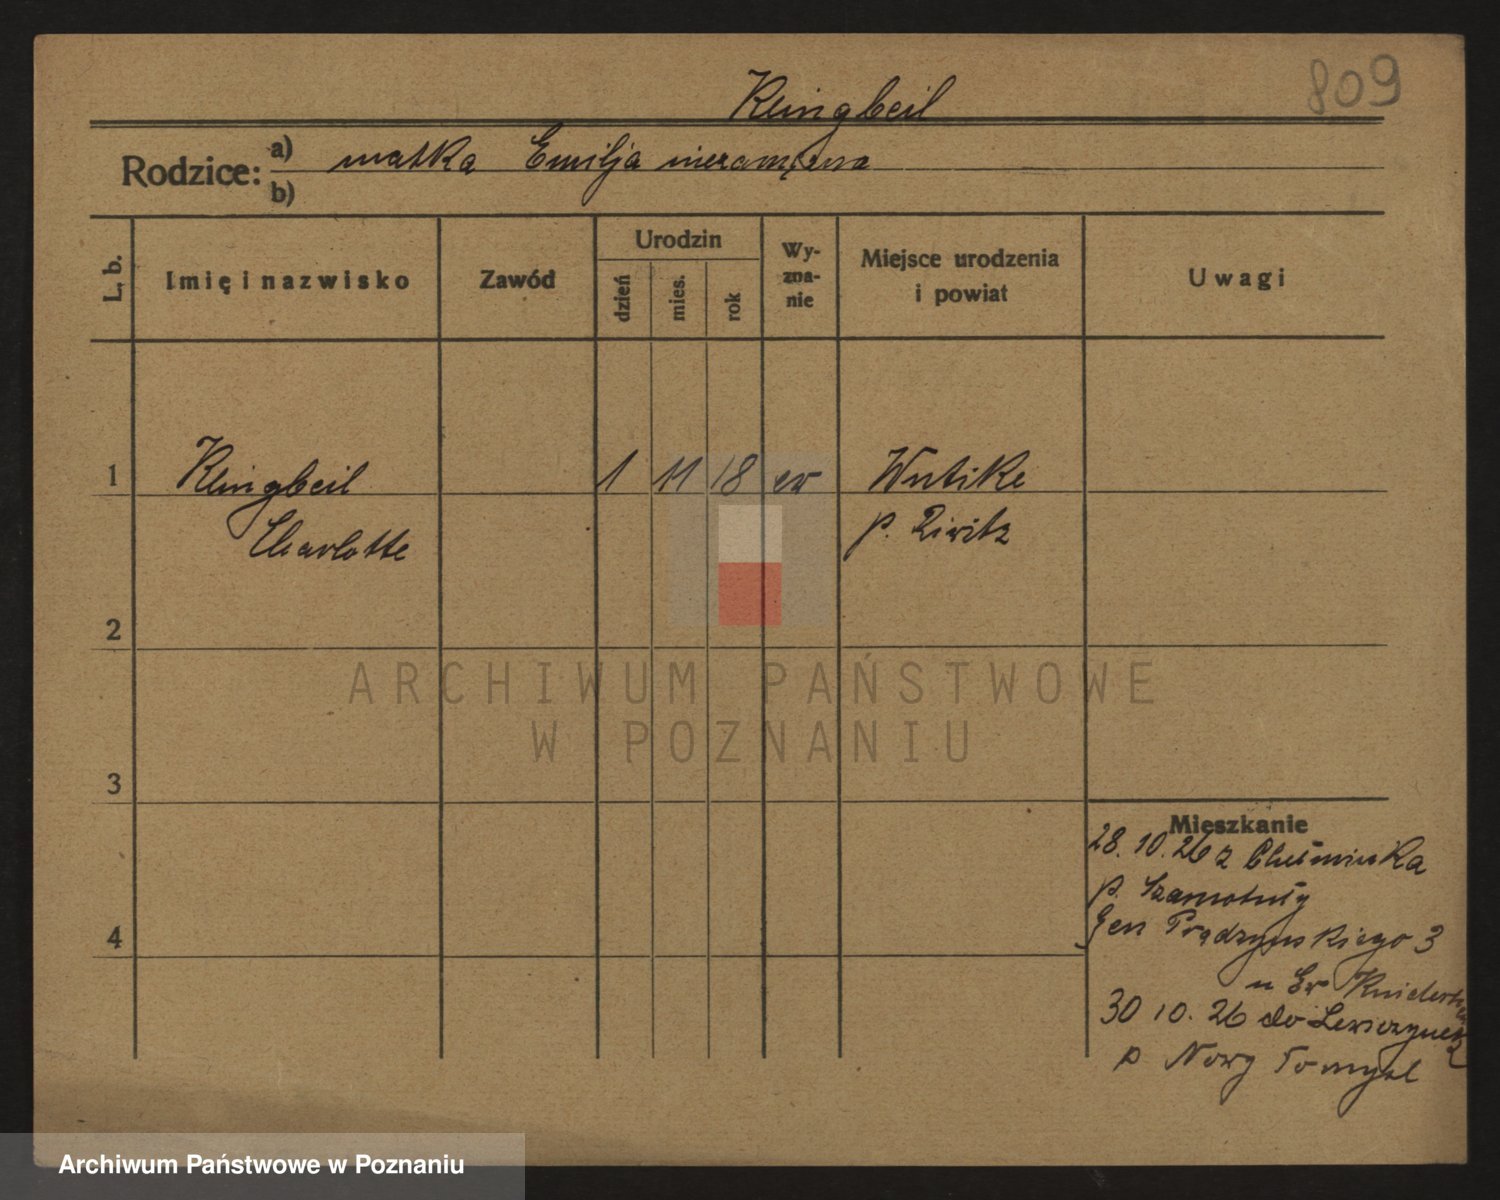 809
Klingbeil
Rodzice: a) matka Emilja niezamężna
b)
L. b.
Imię i nazwisko
Zawód
Urodzin
dzień
mies.
rok
Wy-
zna-
nie
Miejsce urodzenia
i powiat
Uwagi
1 Klingbeil 1 11 18 ew Wutike
Charlotte p.
2
3
4
Mieszkanie
28. 10. 26 z
p. Szamotuły
Gen Prądzyńskiego 3
u Ew
30 10. 26 do
p Nowy Tomyśl
ARCHIWUM PAŃSTWOWE
W POZNANIU
Archiwum Państwowe w Poznaniu